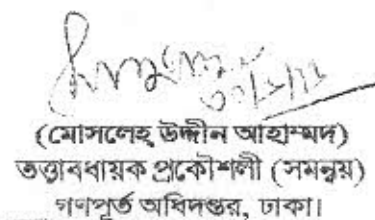 (মোসলেহ্ উদ্দীন আহাম্মদ)
তত্তাবধায়ক প্রকৌশলী (সমন্বয়)
গণপূর্ত অধিদপ্তর, ঢাকা।